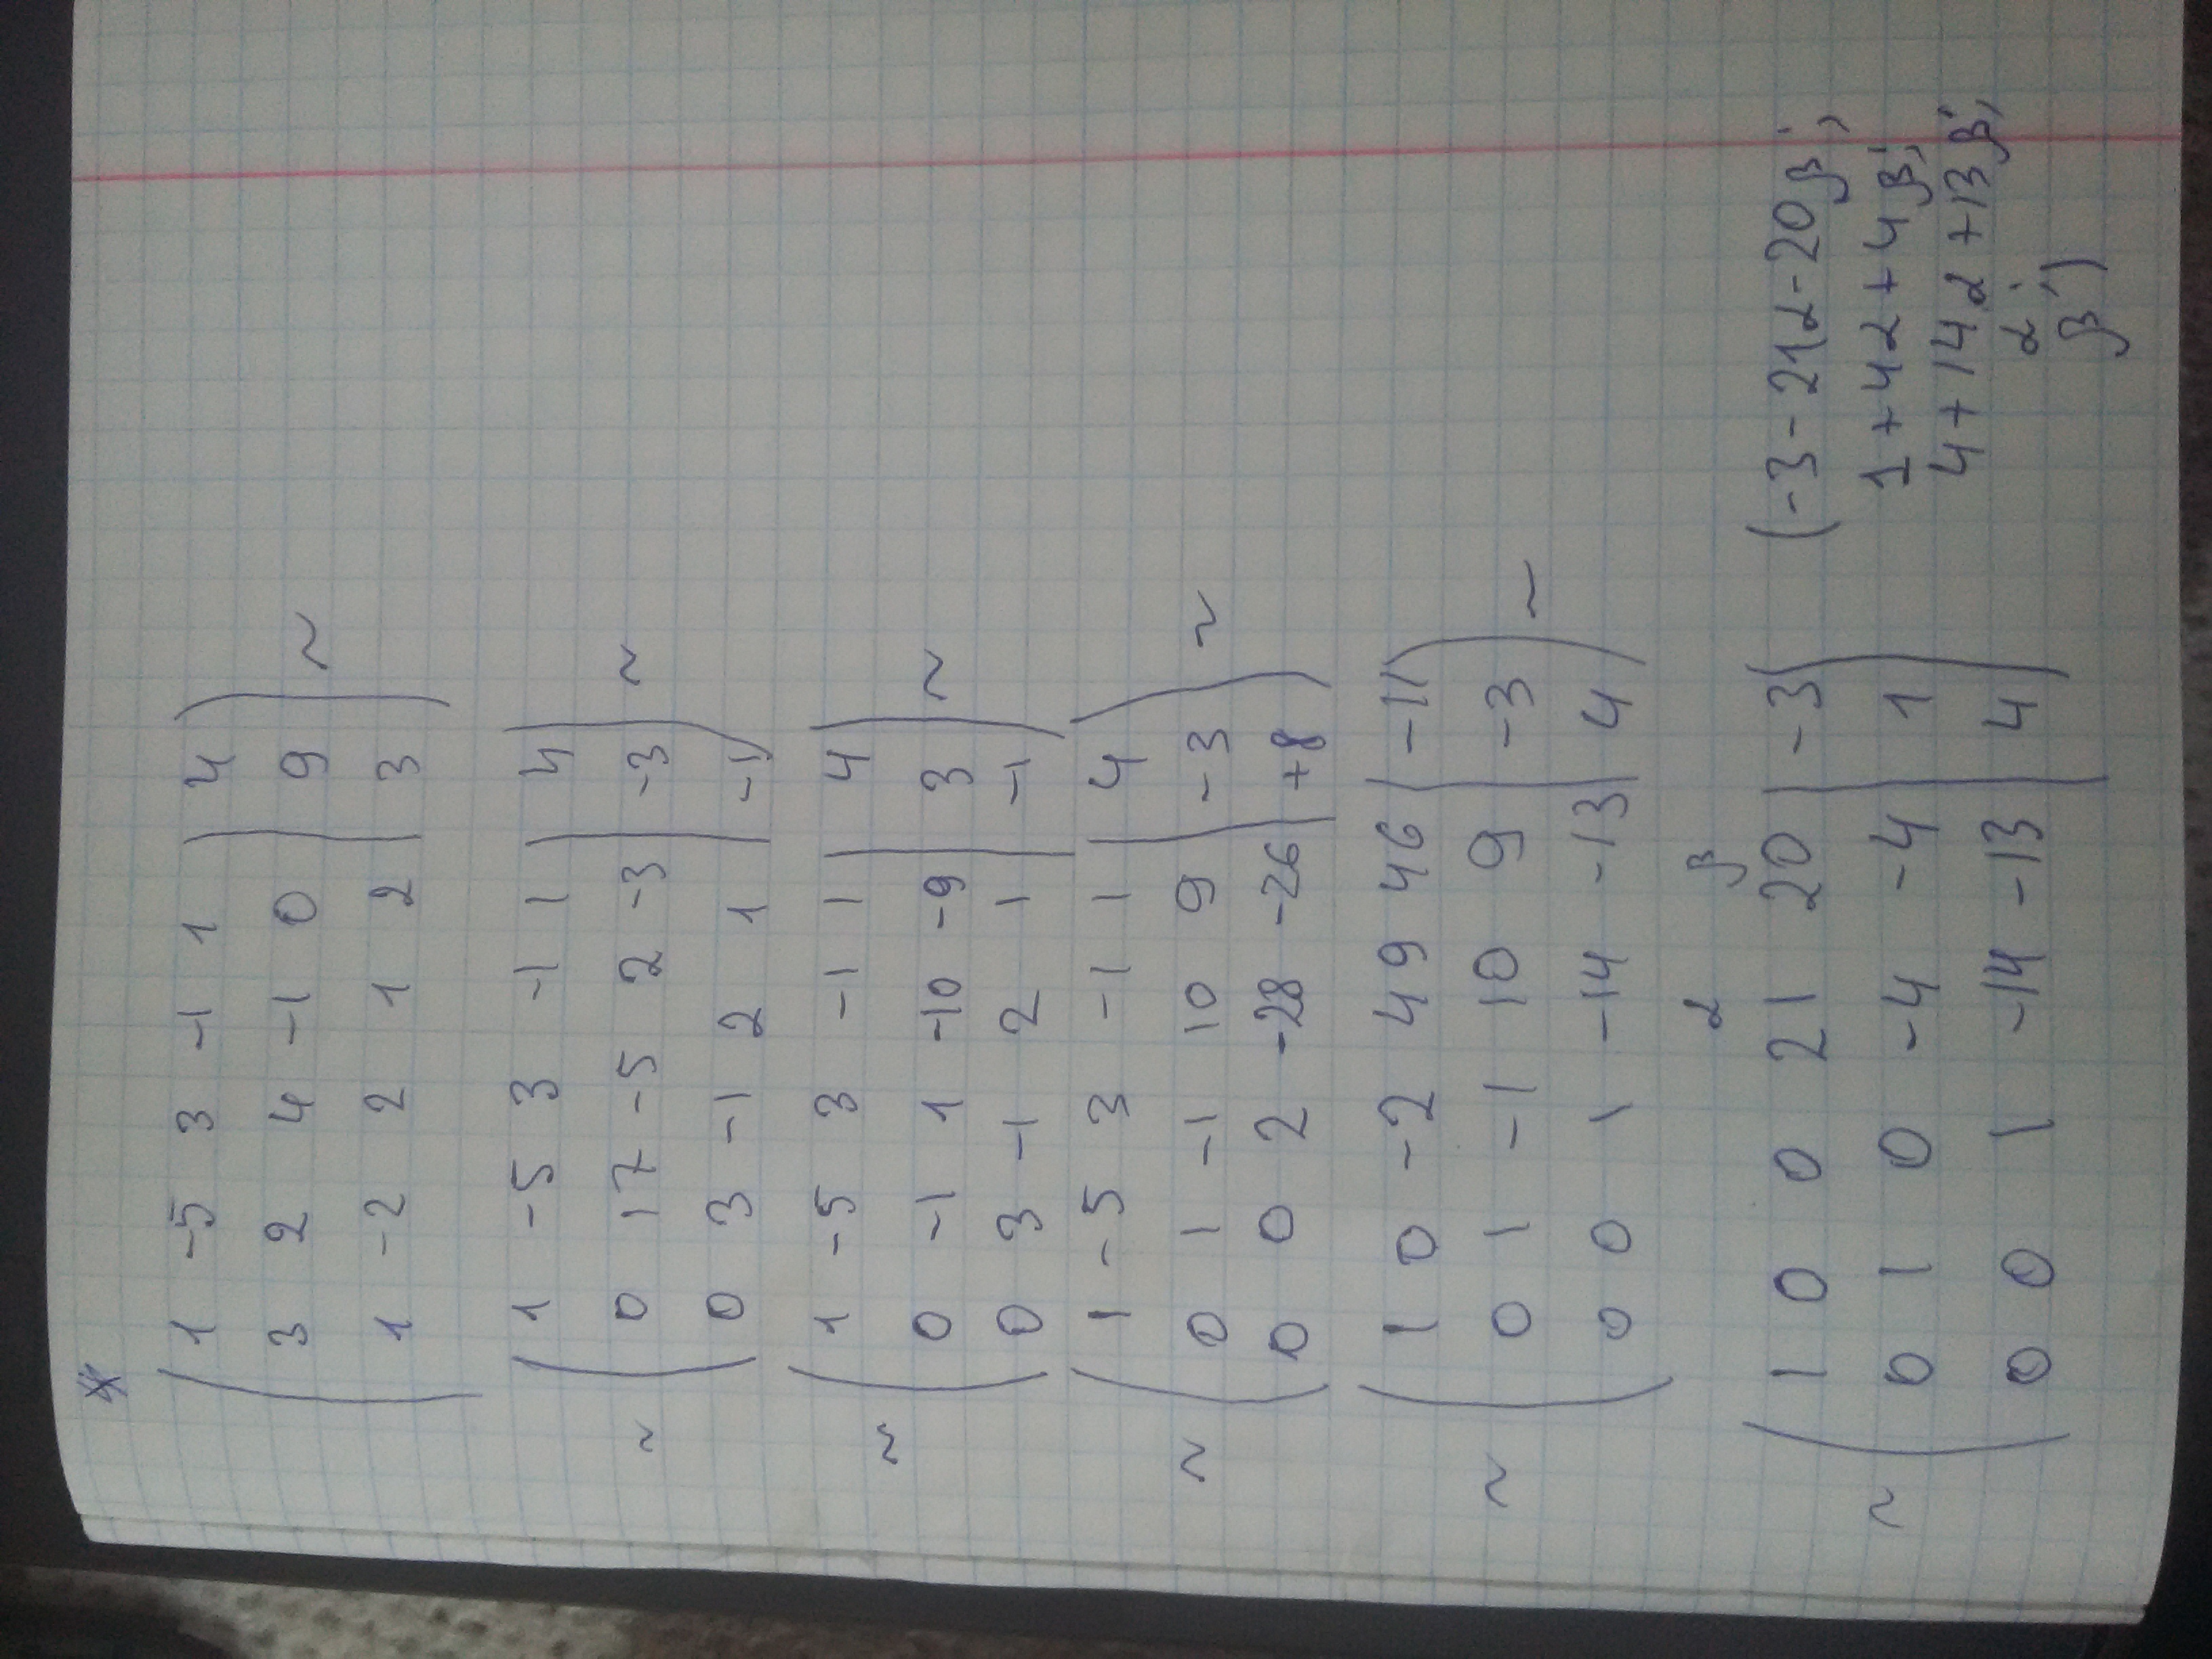 *
( 1 -5 3 -1 1 | 4 )
3 2 4 -1 0 | 9 ~
1 -2 2 1 2 | 3
( 1 -5 3 -1 1 | 4 )
~ 0 17 -5 2 -3 | -3 ~
0 3 -1 2 1 | -1
( 1 -5 3 -1 1 | 4 )
~ 0 -1 1 -10 -9 | 3 ~
0 3 -1 2 1 | -1
( 1 -5 3 -1 1 | 4 )
~ 0 1 -1 10 9 | -3 ~
0 0 2 -28 -26 | +8
( 1 0 -2 49 46 | -11 )
~ 0 1 -1 10 9 | -3 ~
0 0 1 -14 -13 | 4
α β
( 1 0 0 21 20 | -3 ) (-3-21α-20β;
~ 0 1 0 -4 -4 | 1 1+4α+4β;
0 0 1 -14 -13 | 4 4+14α+13β;
α;
β)